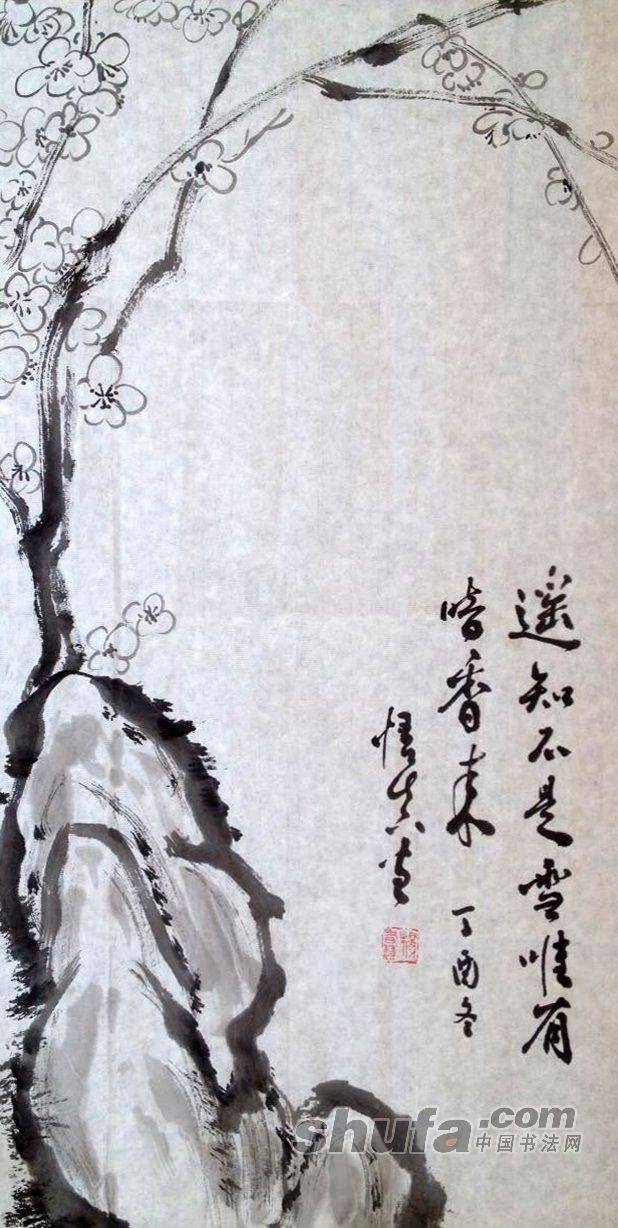 遥知不是雪唯有
暗香来 丁酉冬
悟真
shufa.com
中国书法网